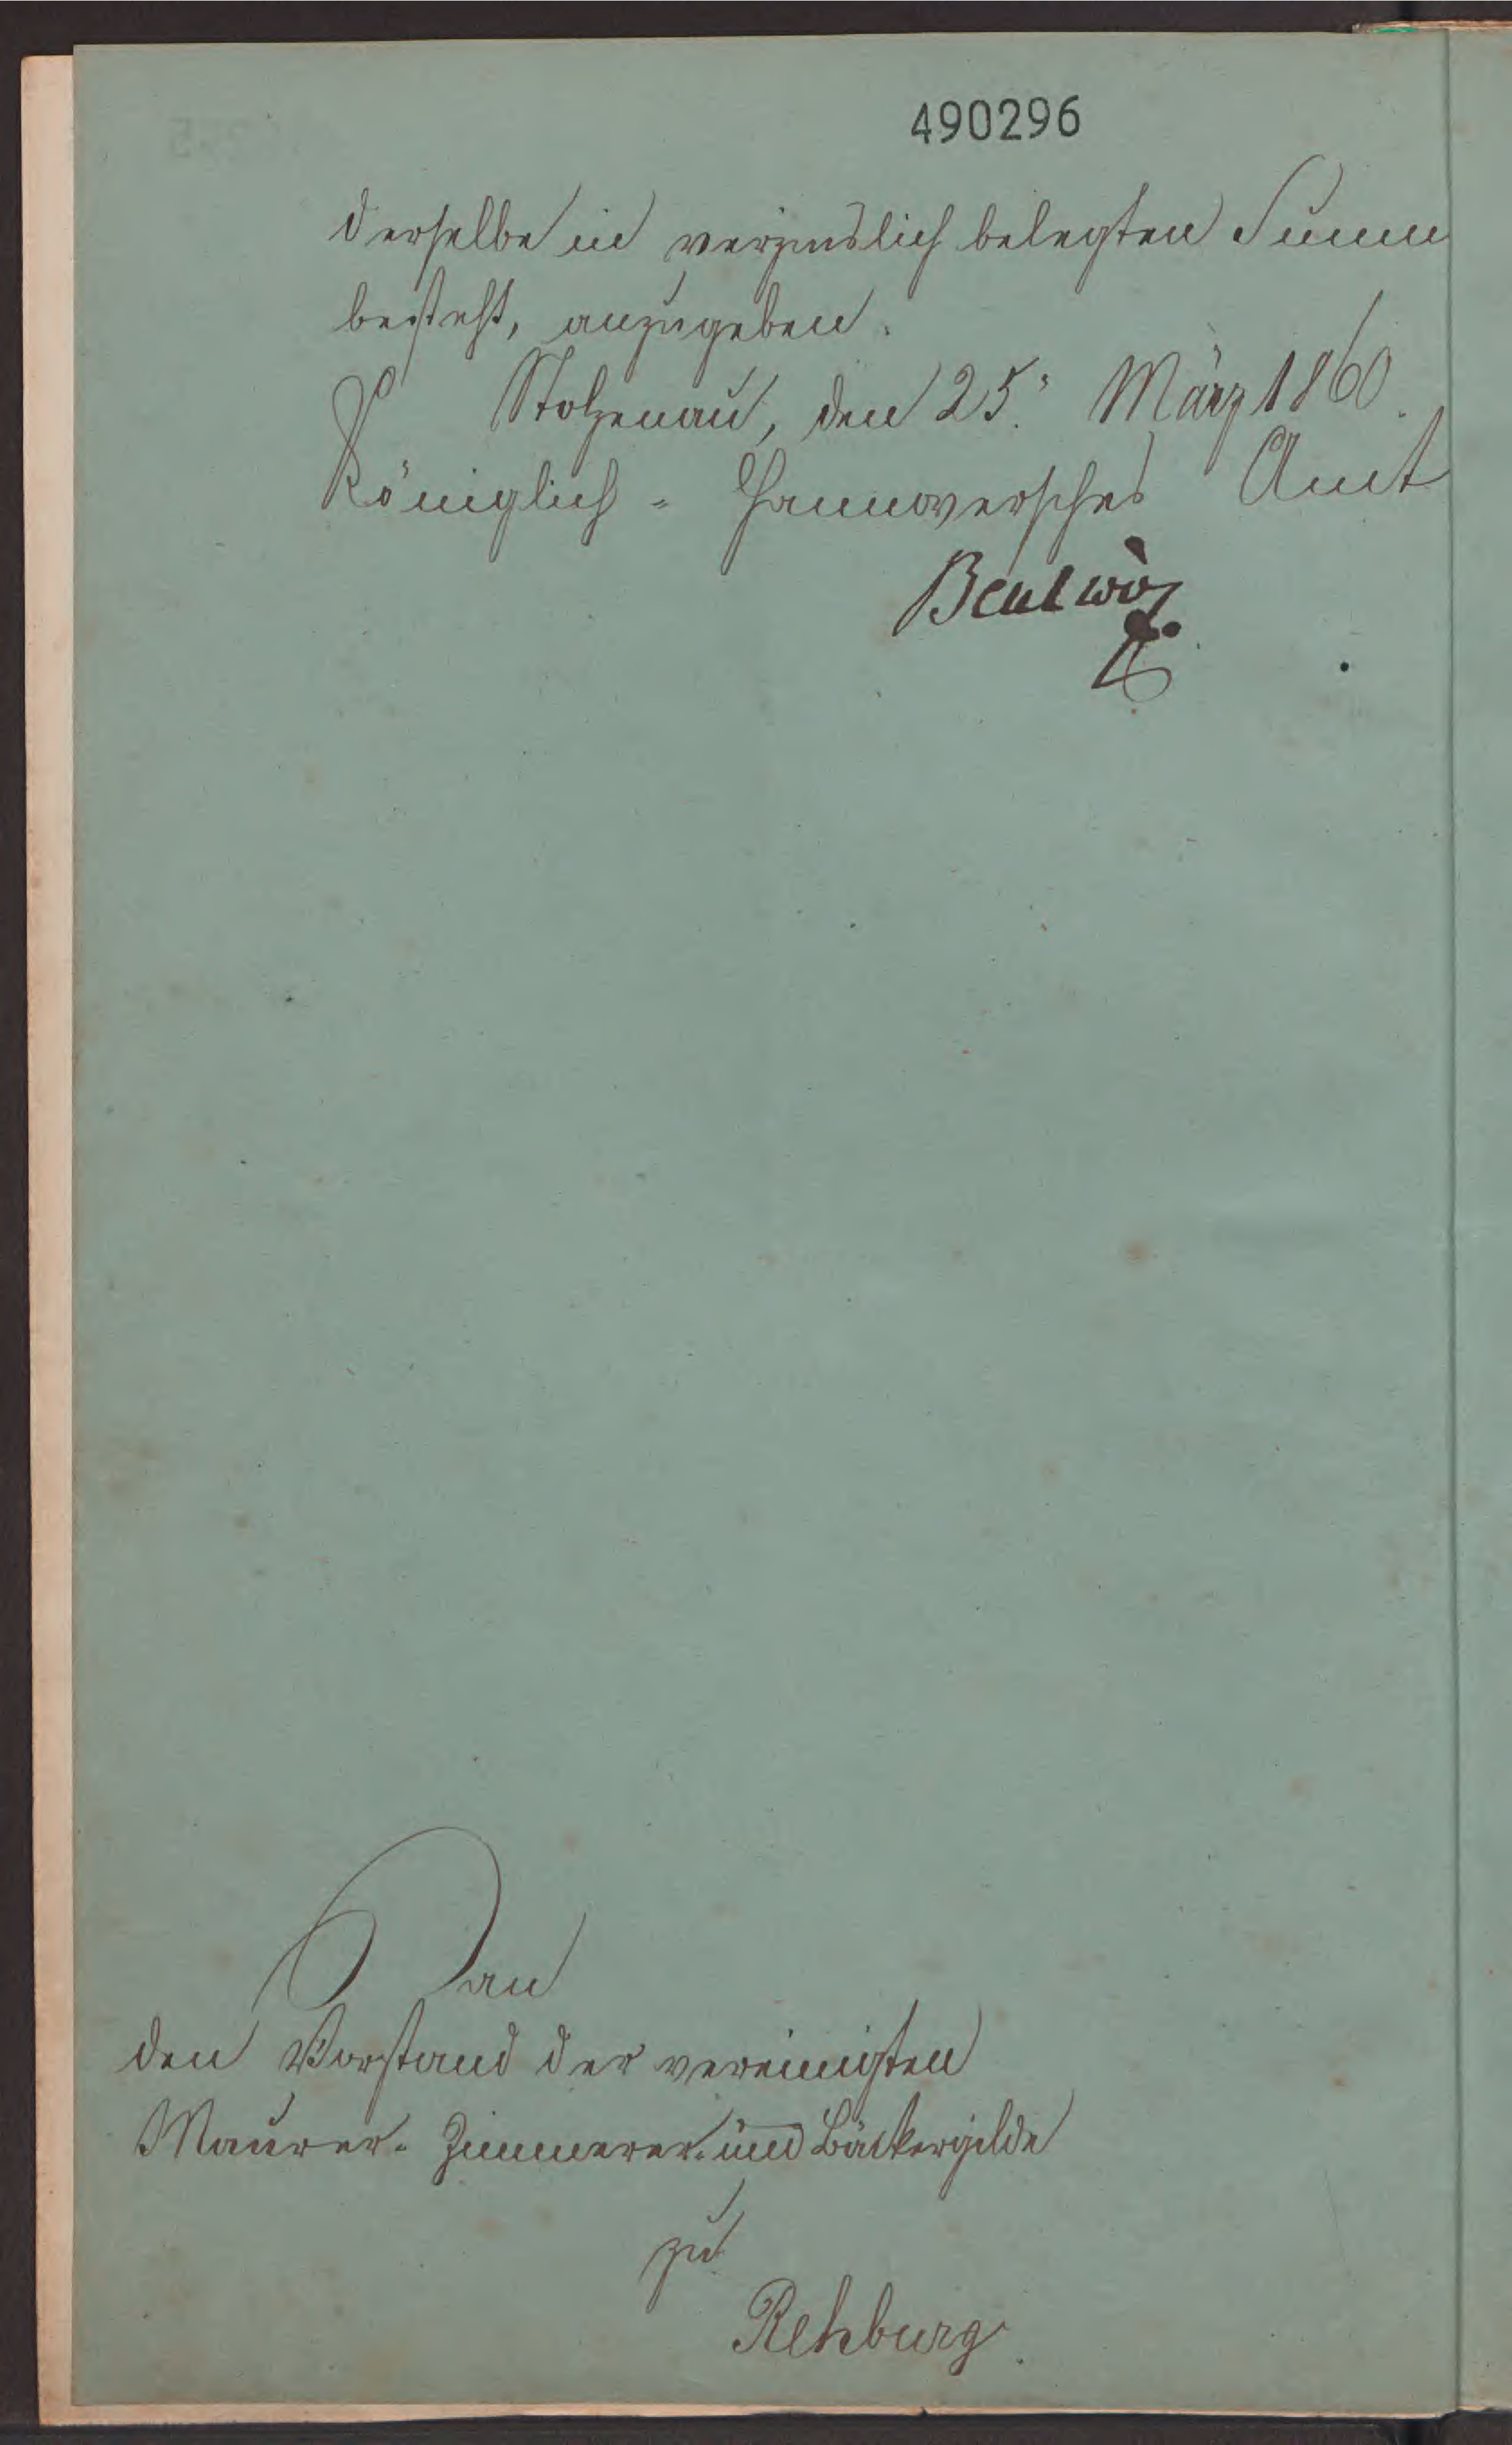 490296
derselbe in verzinslich belegten Summen
besteht, anzugeben.
Stolzenau, den 25. März 1860.
Königlich-Hannoversches Amt
An
den Vorstand der vereinigten
Maurer- Zimmerer- und Bäckergilde
zu
Rehburg.